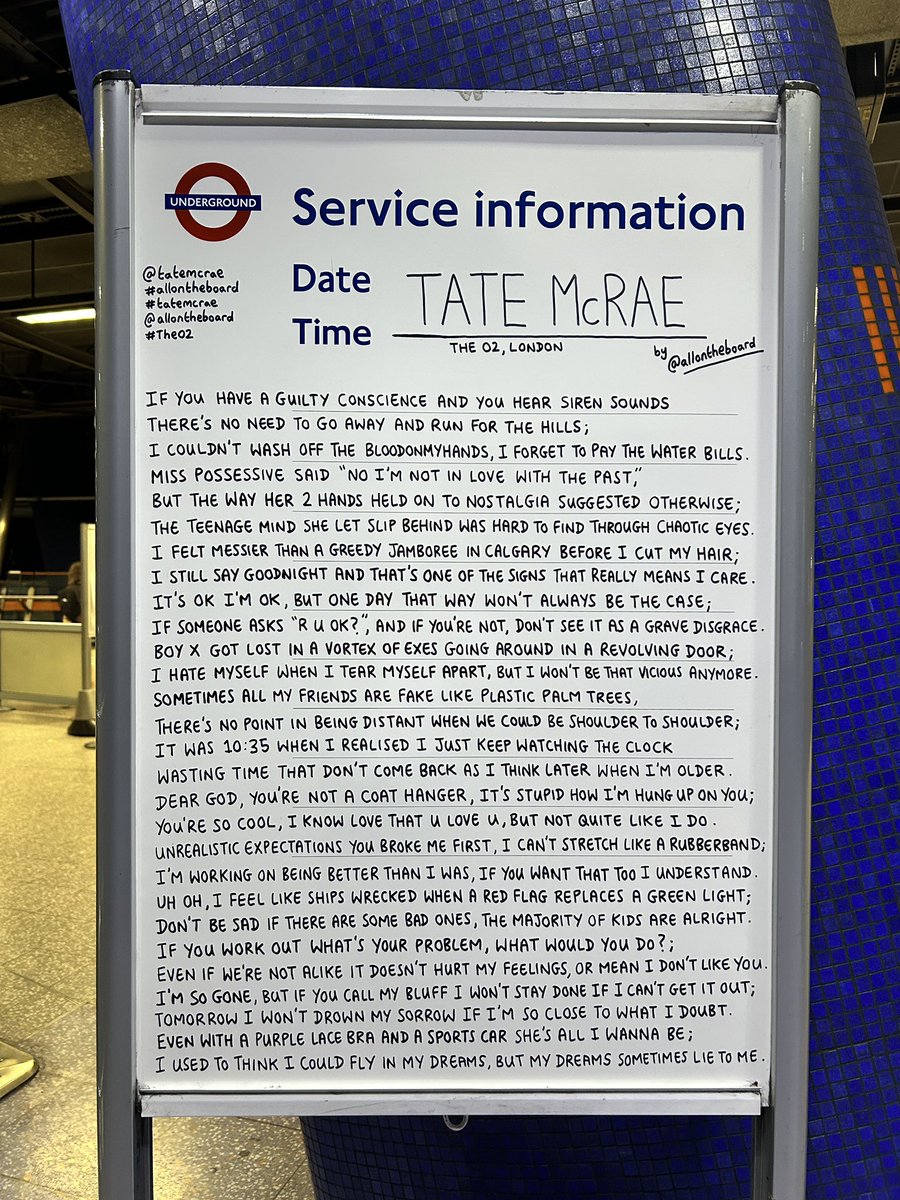 UNDERGROUND
Service information
@tatemcrae
#allontheboard
#tatemcrae
@allontheboard
#TheO2
Date
Time
TATE McRAE
THE O2, LONDON
by @allontheboard
IF YOU HAVE A GUILTY CONSCIENCE AND YOU HEAR SIREN SOUNDS
THERE'S NO NEED TO GO AWAY AND RUN FOR THE HILLS;
I COULDN'T WASH OFF THE BLOODONMYHANDS, I FORGET TO PAY THE WATER BILLS.
MISS POSSESSIVE SAID "NO I'M NOT IN LOVE WITH THE PAST,"
BUT THE WAY HER 2 HANDS HELD ON TO NOSTALGIA SUGGESTED OTHERWISE;
THE TEENAGE MIND SHE LET SLIP BEHIND WAS HARD TO FIND THROUGH CHAOTIC EYES.
I FELT MESSIER THAN A GREEDY JAMBOREE IN CALGARY BEFORE I CUT MY HAIR;
I STILL SAY GOODNIGHT AND THAT'S ONE OF THE SIGNS THAT REALLY MEANS I CARE.
IT'S OK I'M OK, BUT ONE DAY THAT WAY WON'T ALWAYS BE THE CASE;
IF SOMEONE ASKS "R U OK?", AND IF YOU'RE NOT, DON'T SEE IT AS A GRAVE DISGRACE.
BOY X GOT LOST IN A VORTEX OF EXES GOING AROUND IN A REVOLVING DOOR;
I HATE MYSELF WHEN I TEAR MYSELF APART, BUT I WON'T BE THAT VICIOUS ANYMORE.
SOMETIMES ALL MY FRIENDS ARE FAKE LIKE PLASTIC PALM TREES,
THERE'S NO POINT IN BEING DISTANT WHEN WE COULD BE SHOULDER TO SHOULDER;
IT WAS 10:35 WHEN I REALISED I JUST KEEP WATCHING THE CLOCK
WASTING TIME THAT DON'T COME BACK AS I THINK LATER WHEN I'M OLDER.
DEAR GOD, YOU'RE NOT A COAT HANGER, IT'S STUPID HOW I'M HUNG UP ON YOU;
YOU'RE SO COOL, I KNOW LOVE THAT U LOVE U, BUT NOT QUITE LIKE I DO.
UNREALISTIC EXPECTATIONS YOU BROKE ME FIRST, I CAN'T STRETCH LIKE A RUBBERBAND;
I'M WORKING ON BEING BETTER THAN I WAS, IF YOU WANT THAT TOO I UNDERSTAND.
UH OH, I FEEL LIKE SHIPS WRECKED WHEN A RED FLAG REPLACES A GREEN LIGHT;
DON'T BE SAD IF THERE ARE SOME BAD ONES, THE MAJORITY OF KIDS ARE ALRIGHT.
IF YOU WORK OUT WHAT'S YOUR PROBLEM, WHAT WOULD YOU DO?;
EVEN IF WE'RE NOT ALIKE IT DOESN'T HURT MY FEELINGS, OR MEAN I DON'T LIKE YOU.
I'M SO GONE, BUT IF YOU CALL MY BLUFF I WON'T STAY DONE IF I CAN'T GET IT OUT;
TOMORROW I WON'T DROWN MY SORROW IF I'M SO CLOSE TO WHAT I DOUBT.
EVEN WITH A PURPLE LACE BRA AND A SPORTS CAR SHE'S ALL I WANNA BE;
I USED TO THINK I COULD FLY IN MY DREAMS, BUT MY DREAMS SOMETIMES LIE TO ME.